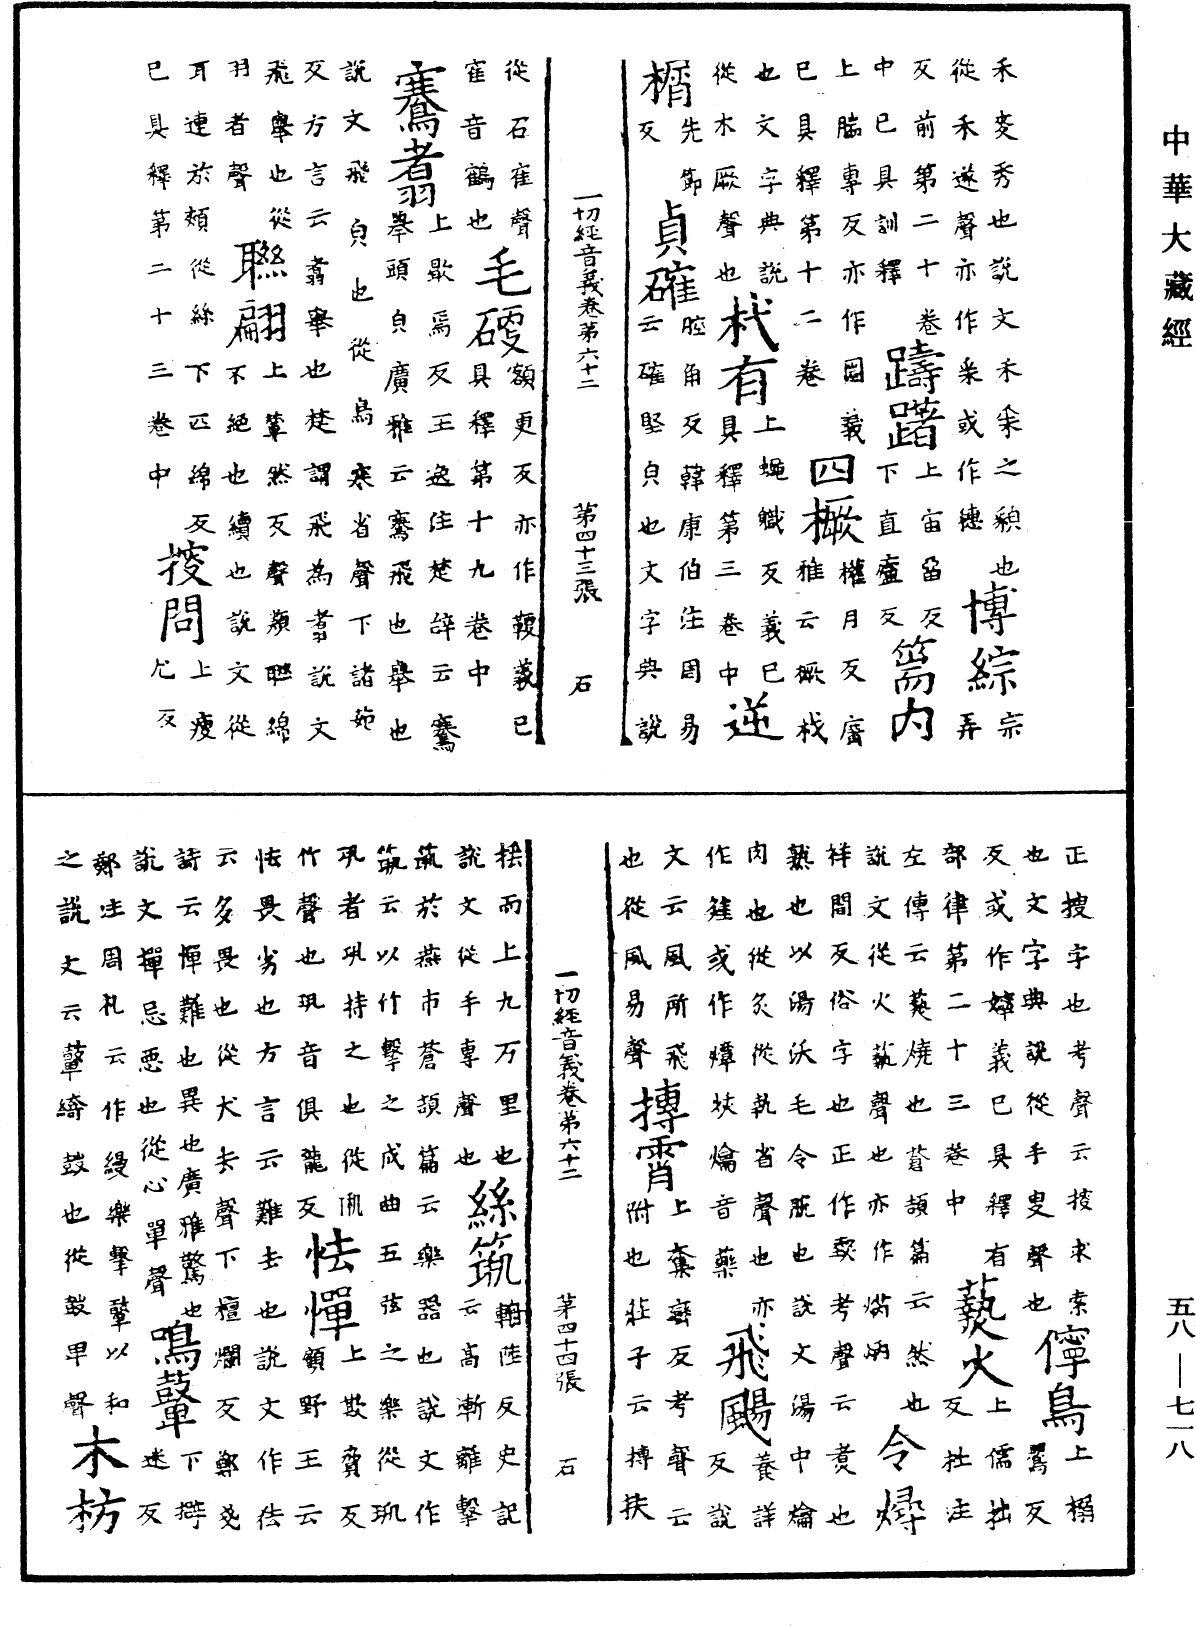 中華大藏經
五八—七一八
禾麥秀也說文禾采之貌也
從禾遂聲亦作采或作穗
博綜
宗
弄
反前第二十卷
中已具訓釋
躊躇
上宙畱反
下直廬反
篅内
上腨專反亦作圌義
已具釋第十二卷
四橛
權月反廣
雅云橛杙
也文字典說
從木厥聲也
杙有
上蠅軄反義已
具釋第三卷中
逆
榍
先節
反
貞確
腔角反韓康伯注周易
云確堅貞也文字典說
一切經音義卷第六十二 第四十三張 石
從石隺聲
隺音鶴也
毛
額更反亦作䩕義已
具釋第十九卷中
騫翥
上歇焉反王逸注楚辭云騫
舉頭皃廣雅云騫飛也舉也
說文飛皃也從鳥寒省聲下諸茹
反方言云翥舉也楚謂飛為翥說文
飛舉也從
羽者聲
聯翩
上輦然反聲類聯綿
不絕也續也說文從
耳連於頰從絲下匹綿反
已具釋第二十三卷中
挍問
上瘦
尤反
正搜字也考聲云挍求索
也文字典說從手叟聲也
儜鳥
上搦
反
反或作義已具釋有
部律第二十三卷中
爇火
上儒拙
反杜注
左傳云爇燒也蒼頡篇云然也
說文從火蓺聲也亦作焫
令燖
祥閻反俗字也正作考聲云煮也
熟也以湯沃毛令脫也說文湯中爚
肉也從炎從執省聲也亦
作或作燂爚音藥
飛颺
養詳
反說
文云風所飛
也從風昜聲
摶霄
上奪反考聲云
附也莊子云摶扶
一切經音義卷第六十二 第四十四張 石
搖而上九万里也
說文從手專聲也
絲筑
輈陸反史記
云高漸離擊
筑於燕市蒼頡篇云樂器也說文作
筑云以竹擊之成曲五弦之樂從巩
巩者巩持之也從丮
竹聲也巩音俱龍反
怯憚
上欺反
顧野王云
怯畏劣也方言云難去也說文作㹤
云多畏也從犬去聲下檀爛反鄭箋
詩云憚難也異也廣雅驚也
說文憚忌惡也從心單聲
鳴鼙
下
迷反
鄭注周礼云作縵樂擊鼙以和
之說文云鼙騎鼓也從鼓卑聲
木枋